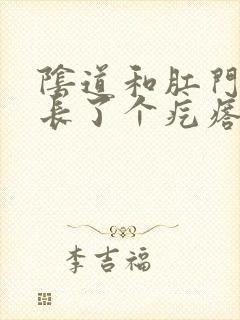 陰道和肛門
長了个疙瘩
李吉福